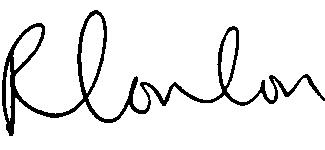 R Conlon